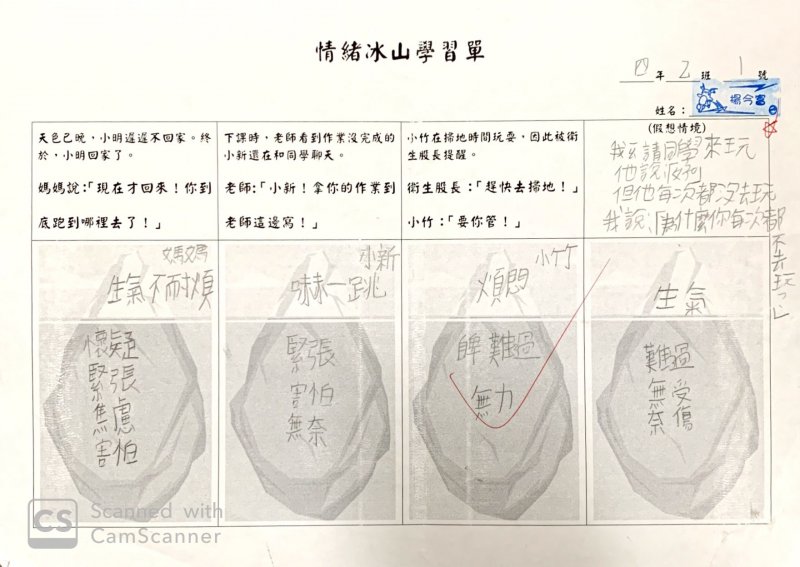 情緒冰山學習單
四年乙班 1號
姓名：楊今富
天色已晚，小明遲遲不回家。終
於，小明回家了。
媽媽說：「現在才回來！你到
底跑到哪裡去了！」
下課時，老師看到作業沒完成的
小新還在和同學聊天。
老師：「小新！拿你的作業到
老師這邊寫！」
小竹在掃地時間玩耍，因此被衛
生股長提醒。
衛生股長：「趕快去掃地！」
小竹：「要你管！」
(假想情境)
請同學來玩
他說
但他每次都沒去玩
我說：「為什麼你每次都
不去玩」
媽媽
生氣 不耐煩
懷疑
緊張
焦慮
害怕
小新
嚇一跳
緊張
害怕
無奈
小竹
煩悶
難過
無力
生氣
難過
無奈
受傷
CS Scanned with
CamScanner